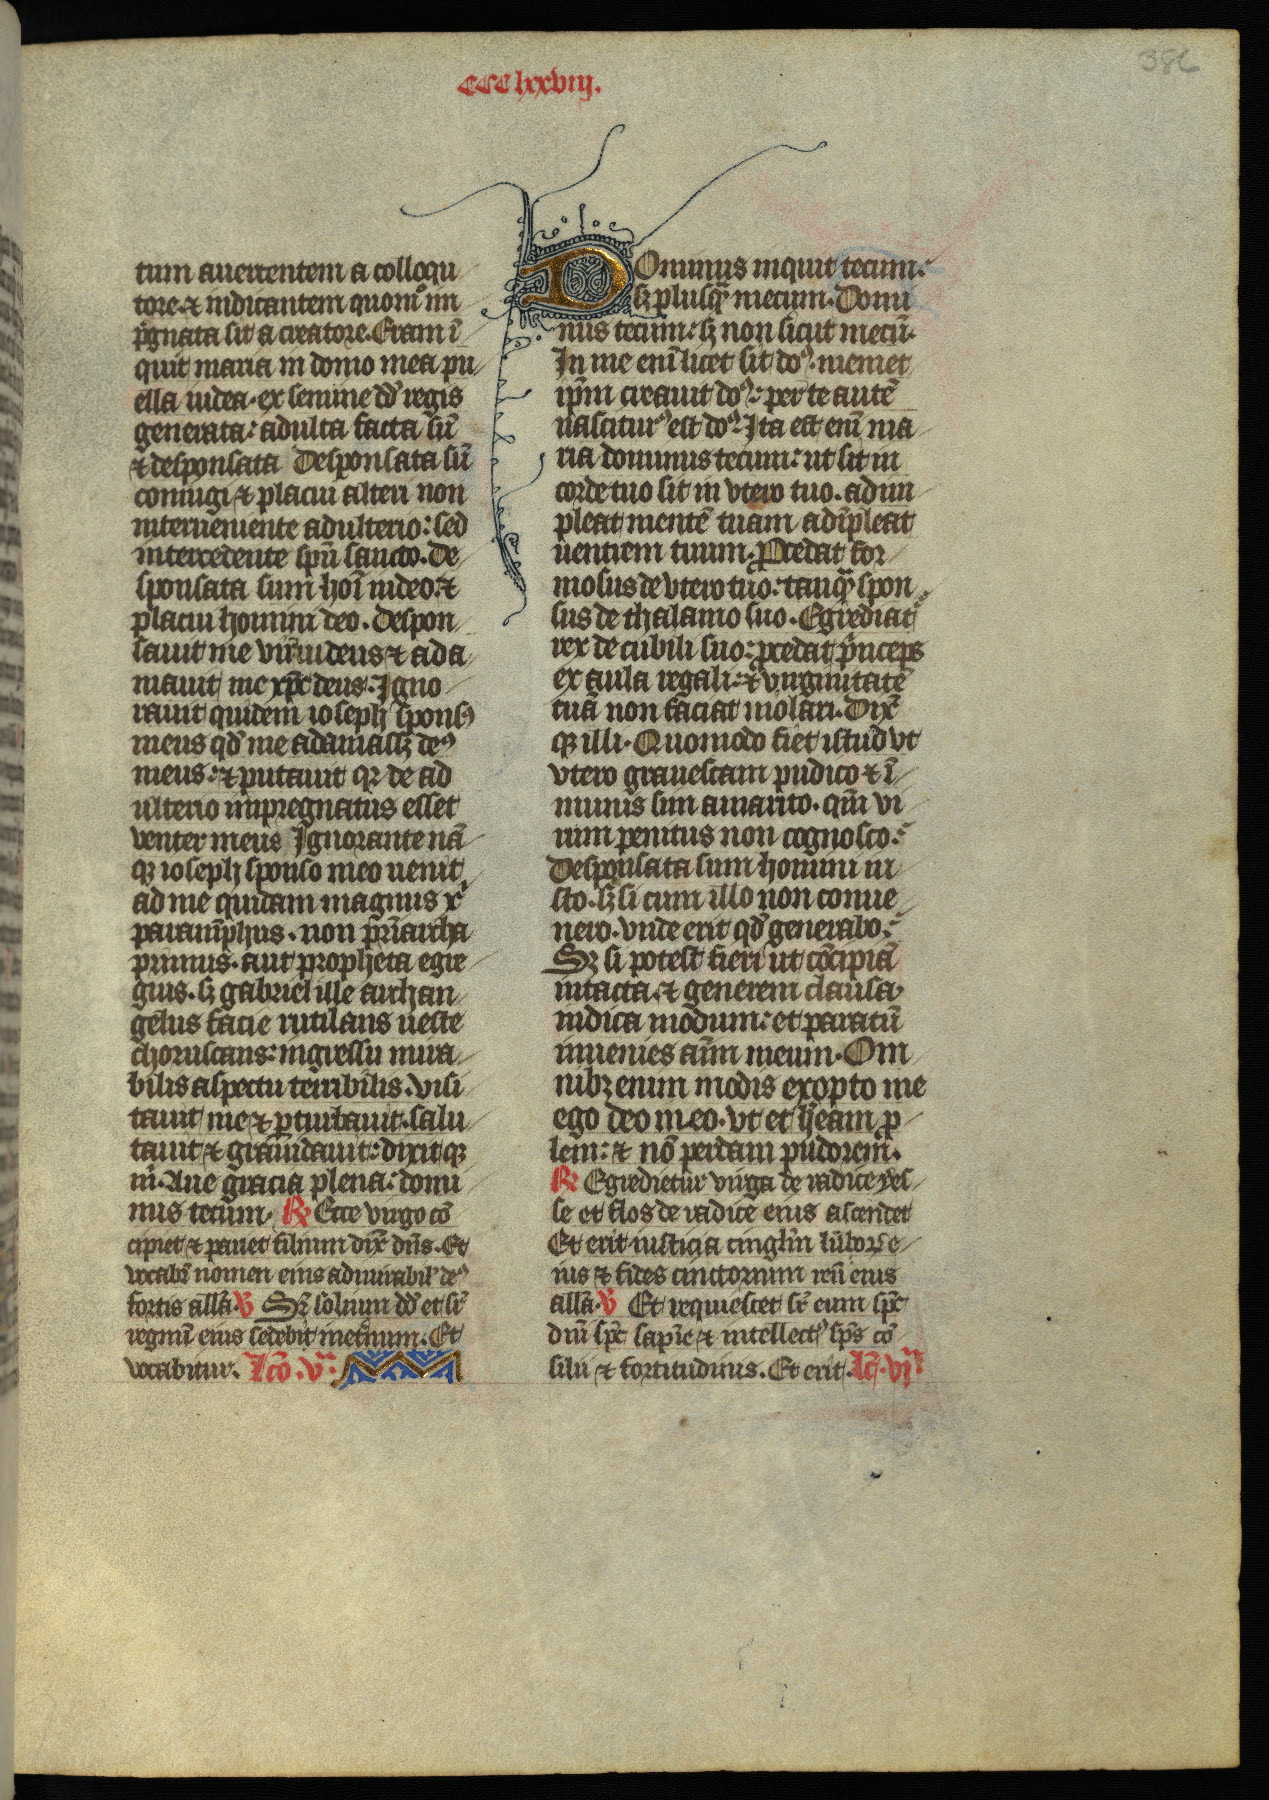 CCClxxviij.
386
tum auertentem a colloqu
tore. & indicantem quomͦ im
p̄gnata sit a creatore. Eram ī
quit maria in domo mea pu
ella iudea. ex semine dd̄ regis
generata: adulta facta sū
& desponsata Desponsata sū
coniugi & placui alteri non
interueniente adulterio: sed
intercedente spū sancto. De
sponsata sum hoī iudeo: &
placui homini deo. Despon
sauit me vir iudeus & ada
mauit me xp̄c deus. Igno
rauit quidem ioseph spons9
meus qd̄ me adamass; de9
meus: & putauit qꝫ de ad
ulterio impregnatus esset
venter meus Ignorante nā
qꝫ ioseph sponso meo uenit
ad me quidam magnus xͥ
paranīphus. non pr̄iarcha
primus. aut propheta egre
gius. sꝫ gabriel ille archan
gelus facie rutilans ueste
choruscans: ingressu mira
bilis aspectu terribilis. visi
tauit me & ꝑturbauit. salu
tauit & grauidauit: dixit qꝫ
m̄. Aue gracia plena: domi
nus tecum. R̄ Ecce virgo cō
cipiet & pariet filium dix̄ dn̄s. Et
vocabīt nomen eius admirabil' de9
fortis all̄a. V̄ Sꝫ solium dd̄ et sr̄
regnū eius sedebit ineternum. Et
vocabitur. Lc̄o. v.ᵃ
DOminus inquit tecum:
sꝫ plusqꝫ mecum. Domi
nus tecum: sꝫ non sicut mecū.
In me enī licet sit do9. memet
ip̄m creauit do9: per te autē
nasciturꝰ est do9. Ita est enī ma
ria dominus tecum: ut sit in
corde tuo sit in vtero tuo. adim
pleat mentē tuam adīpleat
uentrem tuum. Procedat for
mosus de vtero tuo: tanqꝫ spon
sus de thalamo suo. Egrediat̄
rex de cubili suo: ꝓcedat p̄nceps
ex aula regali: & virginitatē
tuā non faciat uiolari. Dix̄
qꝫ illi. Quomodo fiet istud vt
vtero grauescam pudico & ī
munis sim a marito. qm̄ vi
rum penitus non cognosco:
Desponsata sum homini iu
sto. sꝫ si cum illo non conue
nero. vnde erit qd̄ generabo:
Sꝫ si potest fieri ut cōcipiā
intacta. & generem clausa
indica modum: et paratū
inuenies aīm meum. Om
nibꝫ enim modis exopto me
ego deo meo. vt et hēam ꝓ
lem: & nō perdam pudorem.
R̄ Egredietur virga de radice yes
se et flos de radice eius ascendet
Et erit iusticia cinglm̄ lūborꝫ e
ius & fides cinctorium renū eius
all̄a. V̄ Et requiescet sr̄ eum sp̄c
dm̄ sp̄c sapīe & intellectꝰ sp̄s cō
silii & fortitudinis. Et erit. Lc̄. vj.ᵃ